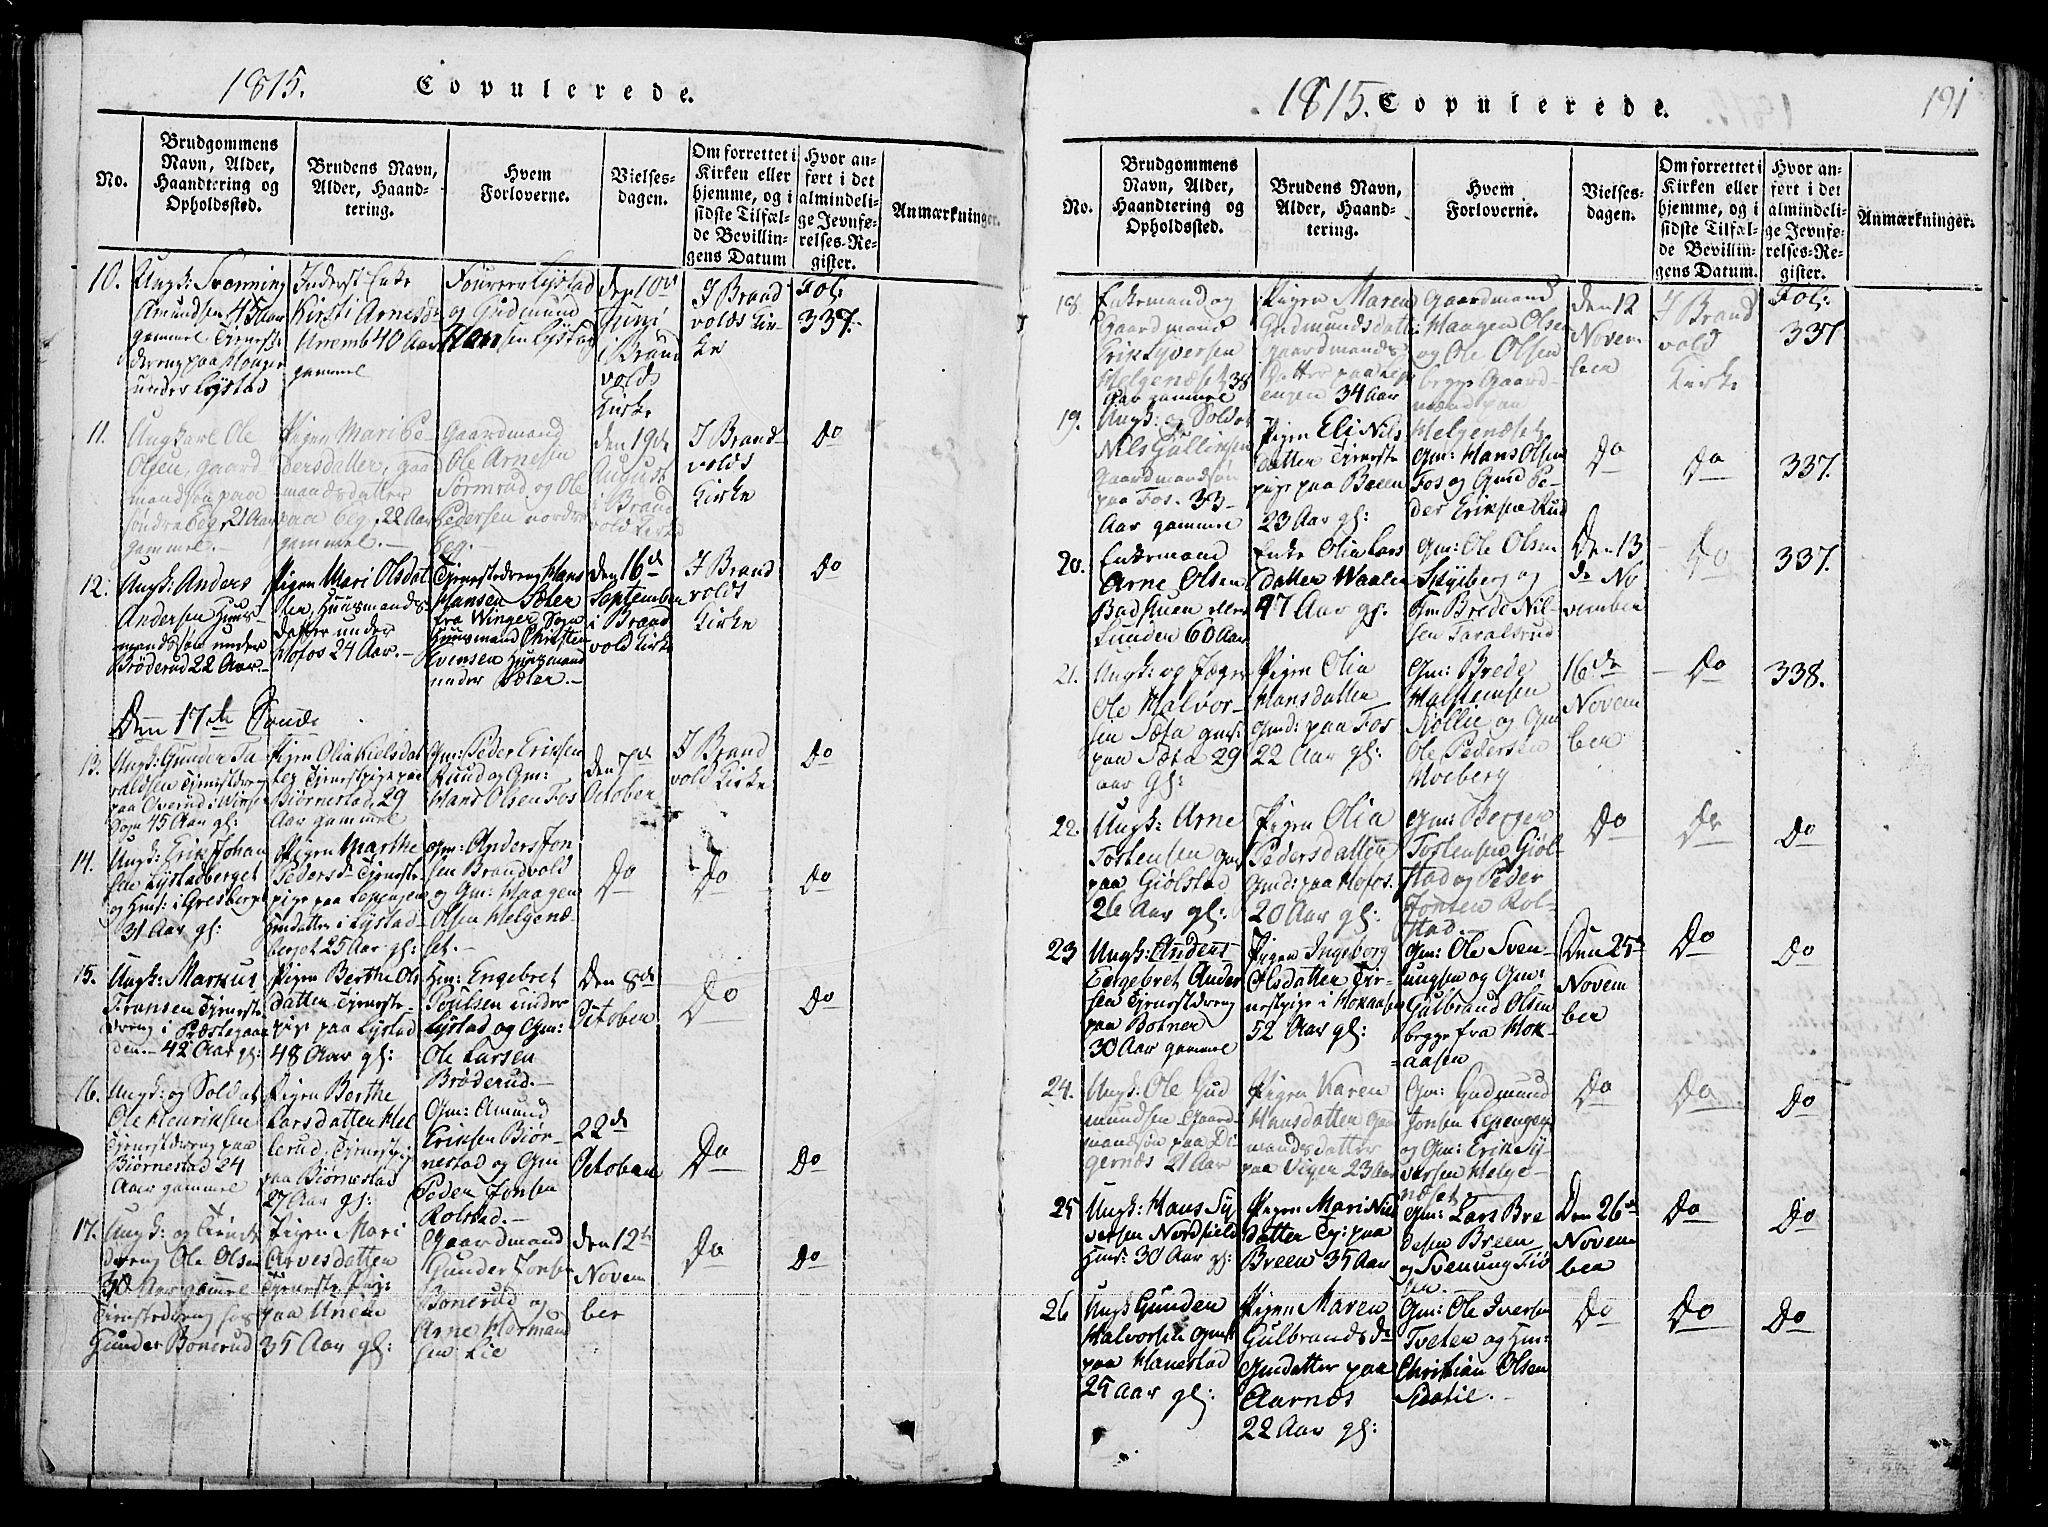 1815. Copulerede.
No.
Brudgommens
Navn, Alder,
Haandtering og
Opholdssted.
Brudens Navn,
Alder, Haand-
tering.
Hvem
Forloverne.
Vielses-
dagen.
Om forrettet i
Kirken eller
hjemme, og i
sidste Tilfæl-
de Bevillin-
gens Datum
Hvor an-
ført i det
almindeli-
ge Jevnfø-
relses-Re-
gister.
Anmærkninger.
10.
Ungk: Svenning
Amundsen 45 Aar
gammel Tieneste-
dreng paa
under Lystad
Inderst Enke
Kirsti Arnesdr
40 Aar
gammel
Lystad
og Gudmund
Hansen Lystad
den 10de
Juni
i Brand
volds
Kirke
I Brand
volds Kir-
ke
Fol:
337.
11.
Ungkarl Ole
Olsen, gaard
mandsøn paa
søndre Beg 21 Aar
gammel.
Pigen Mari Pe-
dersdatter, gaar
mandsdatter
paa Beg, 22 Aar
gammel.
Gaardmand
Ole Arnesen
Sormrud og Ole
Pedersen nordre
Beg.
den 19de
August
i Brand
vold Kirke
I Brand-
volds
Kirke
Do
12.
Ungk: Anders
Andersen Huus-
mandssøn under
Brøderud 22 Aar.
Pigen Mari Olsdat
ter, Huusmands-
datter under
Nofos 24 Aar.
Tienestedreng Hans
Hansen Sæter
fra Winger Sogn
Huusmand Christen
Svensen Huusmand
under Sæter.
den 16de
September
i Brand
vold Kirke
I Brand
volds
Kirke
Do
Den 17de Sønd:
13.
Ungk: Gunder Ta
raldsen Tienestdreng
paa Overud i Winger
Sogn 45 Aar gl:
Pigen Olia Nielsdat
ter Tienestpige paa
Biørnestad, 29
Aar gammel
Gm: Peder Eriksen
Ruud og Gm:
Hans Olsen Fos
den 7de
October
I Brand
vold Kirke
Do
14.
Ungk: Erik Johan
sen Lystadberget
og Hms: i Gresberget
31 Aar gl:
Pigen Marthe
Pedersdr Tieneste
pige paa Leppengen
Hmdatter i Lystad
berget 25 Aar gl:
Gm: Anders Jon
sen Brandvold
og Gm: Haagen
Olsen Helgenæ-
set.
Do
Do
Do
15.
Ungk: Markus
Fransen Tieneste
dreng i Præstegaar
den. 42 Aar gl:
Pigen Berthe Ols
datter Tieneste-
pige paa Lystad
48 Aar gl:
Hm: Engebret
Poulsen under
Lystad og Gm:
Ole Larsen
Brøderud.
Den 8de
October
Do
Do
16.
Ungk: og Soldat
Ole Henriksen
Tienestdreng paa
Biørnestad 24
Aar gammel
Pigen Berthe
Larsdatter Hel
lerud, Tienestpig
paa Biørnestad
27 Aar gl:
Gm: Amund
Eriksen Biør-
nestad og Gm
Peder Jonsen
Rolstad.
22de
October
Do
Do
17.
Ungk: og Tieneste
dreng Ole Olsen
30 Aar gammel
Tienestedreng hos
Gunder Bonerud
Pigen Mari
Arnesdatter
Tieneste Pige
paa
35 Aar gl:
Gaardmand
Gunder Jonsen
Bonerud og
Arne Herman
sen Lie
den 12te
Novem
ber
Do
Do
1815. Copulerede.
191
No.
Brudgommens
Navn, Alder,
Haandtering og
Opholdssted.
Brudens Navn,
Alder, Haand-
tering.
Hvem
Forloverne.
Vielses-
dagen.
Om forrettet i
Kirken eller
hjemme, og i
sidste Tilfæl-
de Bevillin-
gens Datum.
Hvor an-
ført i det
almindeli-
ge Jevnfø-
relses-Re-
gister.
Anmærkninger.
18.
Enkemand og
Gaardmand
Erik Syversen
Helgenæset 38
Aar gammel
Pigen Maren
Gudmundsdatt:
gaardmands
Datter paa Lep
engen 34 Aar
Gaardmand
Haagen Olsen
og Ole Olsen
begge Gaard-
mænd paa
Helgenæset
den 12
Novem
ber
I Brand
vold
Kirke
Fol:
337
19.
Ungk: og Soldat
Nils Gullixsen
Gaardmandsøn
paa Fos. 33
Aar gammel
Pigen Eli Nils
datter Tieneste
pige paa Breen
23 Aar gl:
Gm: Hans Olsen
Fos og Gmd Pe-
der Eriksen Rud
Do
Do
337.
20.
Enkemand
Arne Olsen
Badstuen eller
Lunden 60 Aar
Enke Olia Lars
datter Waaler
47 Aar gl:
Gm: Ole Olsen
Skyeberg og
Hm Brede Nil-
sen Taralsrud
Den 13
de No
vember
Do
337.
21.
Ungk: og Jæger
Ole Halvor-
sen Sæta gms:
paa Sæta 29
aar gl:
Pigen Olia
Hansdatter
Gmd: paa Fos
22 Aar gl:
Gm: Brede
Halstensen
Nollie og Gm
Ole Pedersen
Moeberg
16de
Novem
ber
Do
338.
22.
Ungk: Arne
Tostensen gms
paa Giølstad
26 Aar gl:
Pigen Olia
Pedersdatter
Gmd: paa Nofos.
20 Aar gl:
Gm: Berger
Tostensen Giøl-
stad og Peder
Jonsen Rol-
stad.
Do
Do
Do
23
Ungk: Anders
Engebret Ander
sen Tienestdreng
paa Botner
30 Aar gammel
Pigen Ingeborg
Olsdatter Tie-
nestpige i Mokaasen
52 Aar gl:
Gm: Ole Sven-
ungsen og Gm:
Gulbrand Olsen
begge fra Mok-
aasen
Den 25de
Novem
ber
Do
Do
24.
Ungk: Ole Gud
mundsen Gaard-
mandsøn paa Di-
gernæs 21 Aar
Pigen Karen
Hansdatter Gaar
mandsdatter
paa Viger 23 Aar
Gm: Gudmund
Jonsen Lepengen
og Gm: Erik Sy-
versen Helge-
næset
Do
Do
Do
25
Ungk: Hans Sy
versen Nordfield
Hms: 30 Aar gl:
Pigen Mari Nils
datter Tj: paa
Breen 35 Aar
Gm: Lars Bre
desen Breen
og Svenung Tiø
Den 26de
Novem
ber
Do
Do
26
Ungk Gunder
Halvorsen Gms:
paa Hanestad
25 Aar gl:
Pigen Maren
Gulbrandsdr
Gmdatter paa
Aarnæs
22 Aar gl:
Gm: Ole Iversen
Tveter og Hm:
Christian Olsen
Do
Do
Do